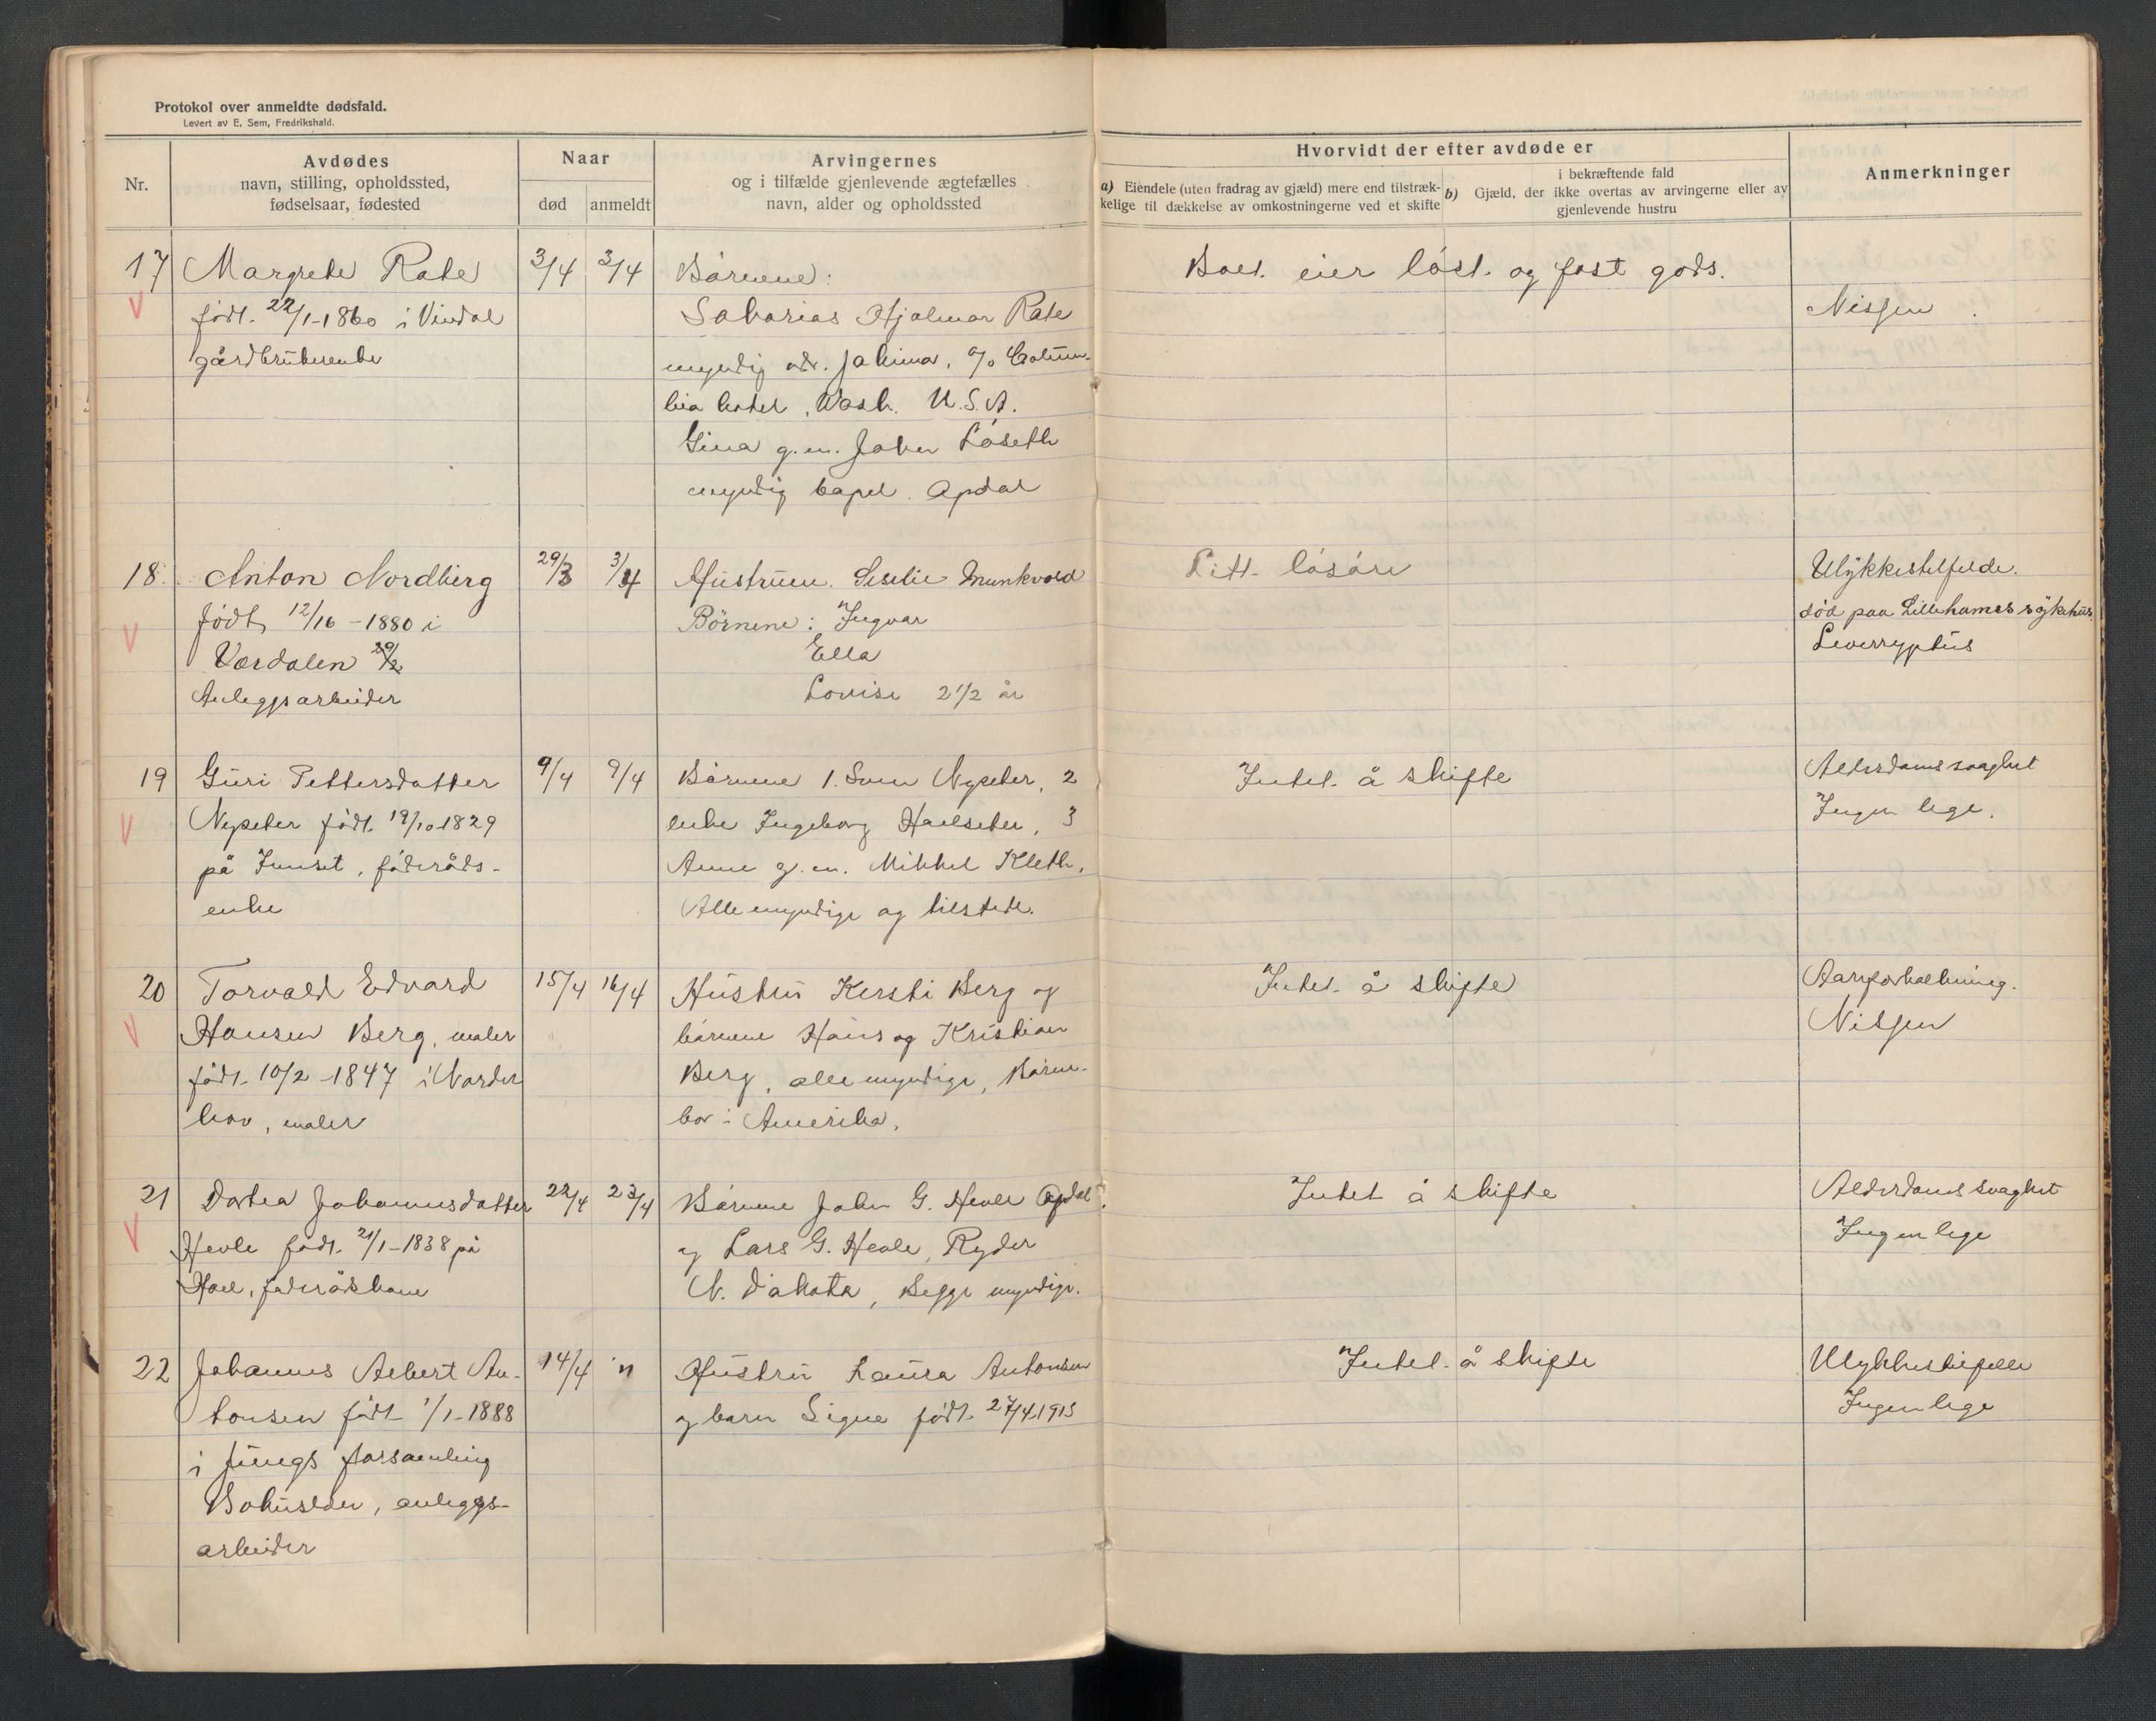 Protokol over anmeldte dødsfald.
Levert av E. Sem, Fredrikshald.
Nr.
Avdødes
navn, stilling, opholdssted,
fødselsaar, fødested
Naar
død
anmeldt
Arvingernes
og i tilfælde gjenlevende ægtefælles
navn, alder og opholdssted
Hvorvidt der efter avdøde er
a) Eiendele (uten fradrag av gjæld) mere end tilstræk-
kelige til dækkelse av omkostningerne ved et skifte
i bekræftende fald
b) Gjæld, der ikke overtas av arvingerne eller av
gjenlevende hustru
Anmerkninger
17
Margrete Rate
født 22/1-1860 i Vindal
gårdbrukerenke
3/4
3/4
Bårnene:
Sakarias Hjalmar Rate
myndig adr. Jakima, c/o Colum-
bia hotel, Wash. U.S.A.
Gina g.m. John Låseth
myndig kapel. Opdal
Boet eier låst og fast gods.
Nissen
18.
Anton Nordberg
født 12/16 - 1880 i
Værdalen 29/2
Anleggsarbeider
29/3
3/4
Hustruen. Munkvold
Börnene: Ingvar
Ella
Lovise 2 1/2 år
Litt låsåre
Ulykkestilfelde.
død paa Lillehamers sykehus
19
Guri Pettersdatter
Nyseter født 19/10-1829
på Innset, føderåds-
enke
9/4
9/4
Bårnene 1. Sven Nyseter, 2
enke Ingeborg Haelseter, 3
Anne g.m. Mikkel Kleth.
Alle myndige og tilstede.
Intet å skifte
Alderdomssvaghet
Ingen lege.
20
Torvald Edvard
Hansen Berg, maler
født 10/2-1847 i Norder
hov, maler
15/4
16/4
Hustru Kersti Berg og
bårnene Hans og Kristian
Berg, alle myndige, Bårne-
bor i Amerika.
Intet å skifte
Aareforkalkning.
Nissen
21
Dortea Johannesdatter
Hevle født 21/1-1838 på
Hoel, føderådskone
22/4
23/4
Bårnene John G. Hevle Opdal
og Lars G. Hevle, Ryder
N. Dakota, Begge myndige.
Intet å skifte
Alderdomssvaghet
Ingen lege
22
Johannes Albert An-
tonsen født 1/1-1888
i Jungs forsamling
Bohuslen, anleggs-
arbeider
14/4
"
Hustru Laura Antonsen
og barn Signe født 27/4 1913
Intet å skifte
Ulykkestilfelle
Ingen lege